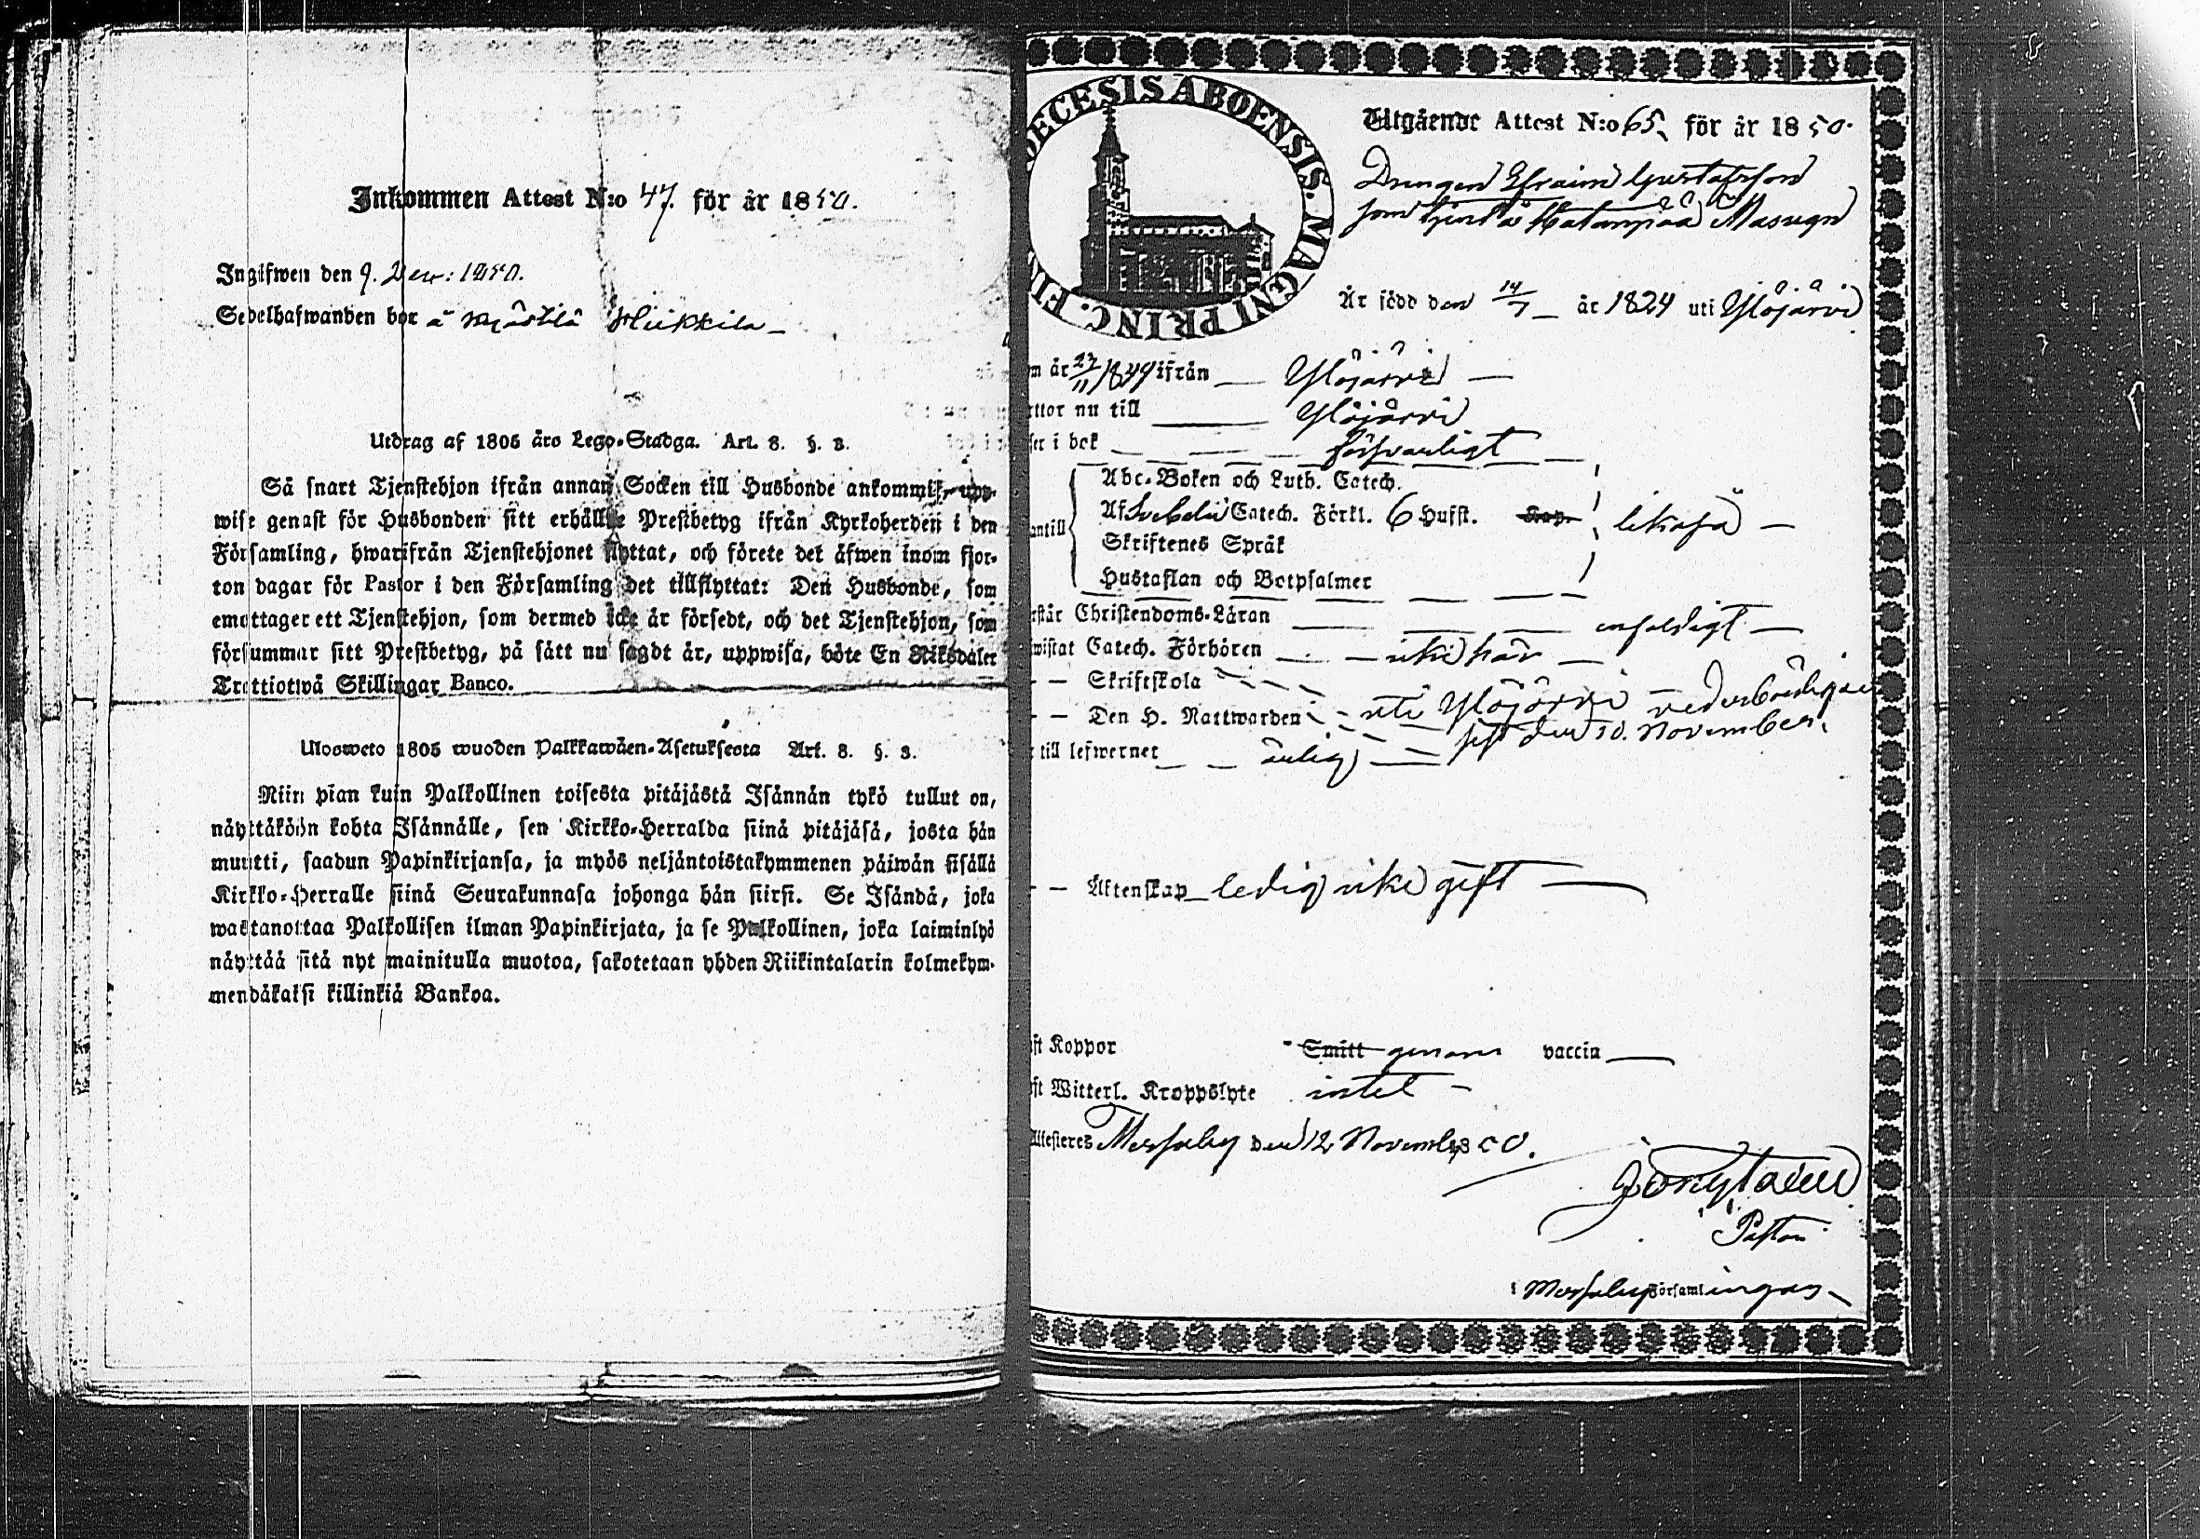 Inkommen Attest N:o 47. för år 1850.
Ingifwen den 9. Dec: 1850.
Sedelhafwanden bor å Mjöstilä Heikkilä
Utdrag af 1805 års Lego-Stadga. Art. 8. §. 3.
Så snart Tjenstehjon ifrån annan Socken till Husbonde ankommit, upp-
wise genast för Husbonden sitt erhållne Prestbetyg ifrån Kyrkoherden i den
Församling, hwarifrån Tjenstehjonet flyttat, och förete det äfwen inom fjor-
ton dagar för Pastor i den Församling det tillflyttat: Den Husbonde, som
emottager ett Tjenstehjon, som dermed icke är försedt, och det Tjenstehjon, som
försummar sitt Prestbetyg, på sätt nu sagdt är, uppwisa, böte En Riksdaler
Trettiotwå Skillingar Banco.
Ulosweto 1805 wuoden Palkkawäen-Asetuksesta Art. 8. §. 3.
Niin pian kuin Palkollinen toisesta pitäjästä Isännän tykö tullut on,
näyttäköön kohta Isännälle, sen Kirkko-Herralda siinä pitäjäsä, josta hän
muutti, saadun Papinkirjansa, ja myös neljäntoistakymmenen päiwän sisällä
Kirkko-Herralle siinä Seurakunnasa johonga hän siirsi. Se Isändä, joka
wastanottaa Palkollisen ilman Papinkirjata, ja se Palkollinen, joka laiminlyö
näyttää sitä nyt mainitulla muotoa, sakotetaan yhden Riikintalarin kolmekym-
mendäkaksi killinkiä Bankoa.
OECESIS ABOENSIS. MAGNI PRINC. FIN
Utgående Attest N:o 65. för år 1850.
Drengen Efraim Gustafsson
som tjent å Hatanpää Masugn
Är född den 14/7 år 1824 uti Ylöjärvi
m år 23/11 1849 ifrån Ylöjärvi
ttor nu till Ylöjärvi
ser i bok försvarligt
Abc-Boken och Luth. Catech.
antill Af Svebelii Catech. Förkl. 6 Hufst. likaså
Skriftenes Språk
Hustaflan och Botpsalmer
rstår Christendoms-Läran enfaldigt
wistat Catech. Förhören icke här
Skriftskola
Den H. Nattwarden uti Ylöjärvi vederbörligen
sist den 10. November.
till lefwernet ärlig
Äktenskap ledig icke gift
ft Koppor Smitt genom vaccin
ft Witterl. Kroppslyte intet
Attesteres Messuby den 12 November 50.
Pastor
i Messuby Församlingar